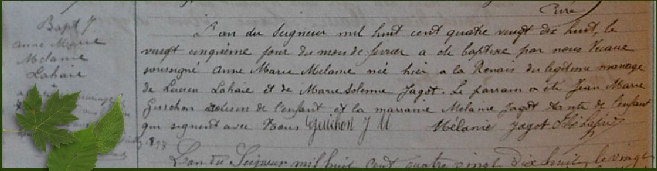 Curé
Bapt J
Anne Marie
Mélanie
Lahaie
L'an du Seigneur mil huit cent quatre vingt dix huit, le
vingt cinquième jour du mois de février a été baptisée par nous vicaire
soussigné Anne Marie Mélanie née hier à la Renais du légitime mariage
de Lucien Lahaie et de Marie Solenne Jagot. Le parrain a été Jean Marie
Guichon cousin de l'enfant et la marraine Mélanie Jagot tante de l'enfant
qui signent avec Nous Guichon J M Mélanie Jagot
L'an du Seigneur mil huit cent quatre vingt dix huit, le vingt